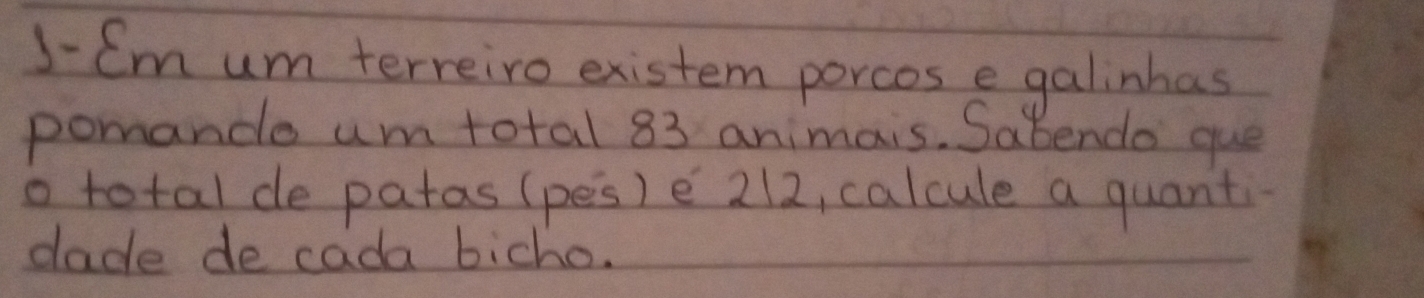 1-Em um terreiro existem porcos e galinhas
pomando um total 83 animais. Sabendo que
o total de patas (pés) é 212, calcule a quanti-
dade de cada bicho.